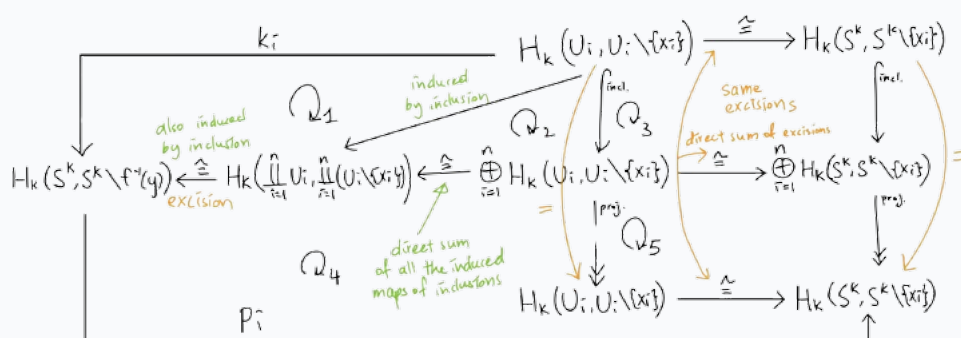 k_i
H_k(U_i, U_i \ {x_i}) ≅ H_k(S^k, S^k \ {x_i})
incl. incl.
induced
by inclusion
1
2
3
same
excisions
also induced
by inclusion
direct sum of excisions
H_k(S^k, S^k \ f^{-1}(y)) ≅ H_k(∐_{i=1}^n U_i, ∐_{i=1}^n (U_i \ {x_i})) ≅ ⊕_{i=1}^n H_k(U_i, U_i \ {x_i}) ≅ ⊕_{i=1}^n H_k(S^k, S^k \ {x_i}) =
excision
=
proj. proj.
4
direct sum
of all the induced
maps of inclusions
5
H_k(U_i, U_i \ {x_i}) ≅ H_k(S^k, S^k \ {x_i})
P_i